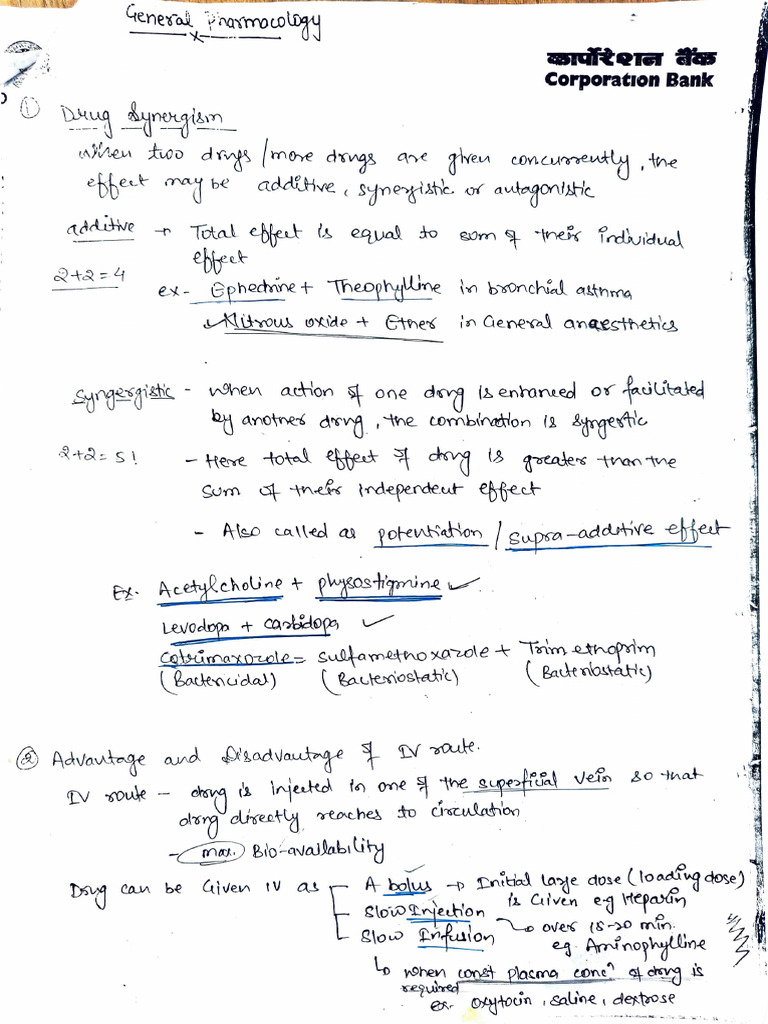 General Pharmacology
कार्पोरेशन बैंक
Corporation Bank
① Drug Synergism
When two drugs/more drugs are given concurrently, the
effect may be additive, synergistic or antagonistic
additive → Total effect is equal to sum of their individual
effect
2+2=4
ex- Ephedrine + Theophylline in bronchial asthma
Nitrous oxide + Ether in General anaesthetics
Syngergistic - when action of one drug is enhanced or facilitated
by another drug, the combination is syngertic
2+2=5!
- Here total effect of drug is greater than the
sum of their independent effect
- Also called as potentiation / supra-additive effect
Ex. Acetylcholine + physostigmine ✓
Levodopa + carbidopa ✓
Cotrimaxozole = sulfamethoxazole + Trimethoprim
(Bactericidal) (Bacteriostatic) (Bacteriostatic)
② Advantage and Disadvantage of IV route.
IV route - drug is injected in one of the superficial vein so that
drug directly reaches to circulation
- max. Bio-availability
Drug can be Given IV as
A bolus → Initial large dose (loading dose)
is Given e.g Heparin
Slow Injection → over 15-20 min.
eg. Aminophylline
Slow Infusion
↳ when const plasma concⁿ of drug is
required
ex- oxytocin, saline, dextrose